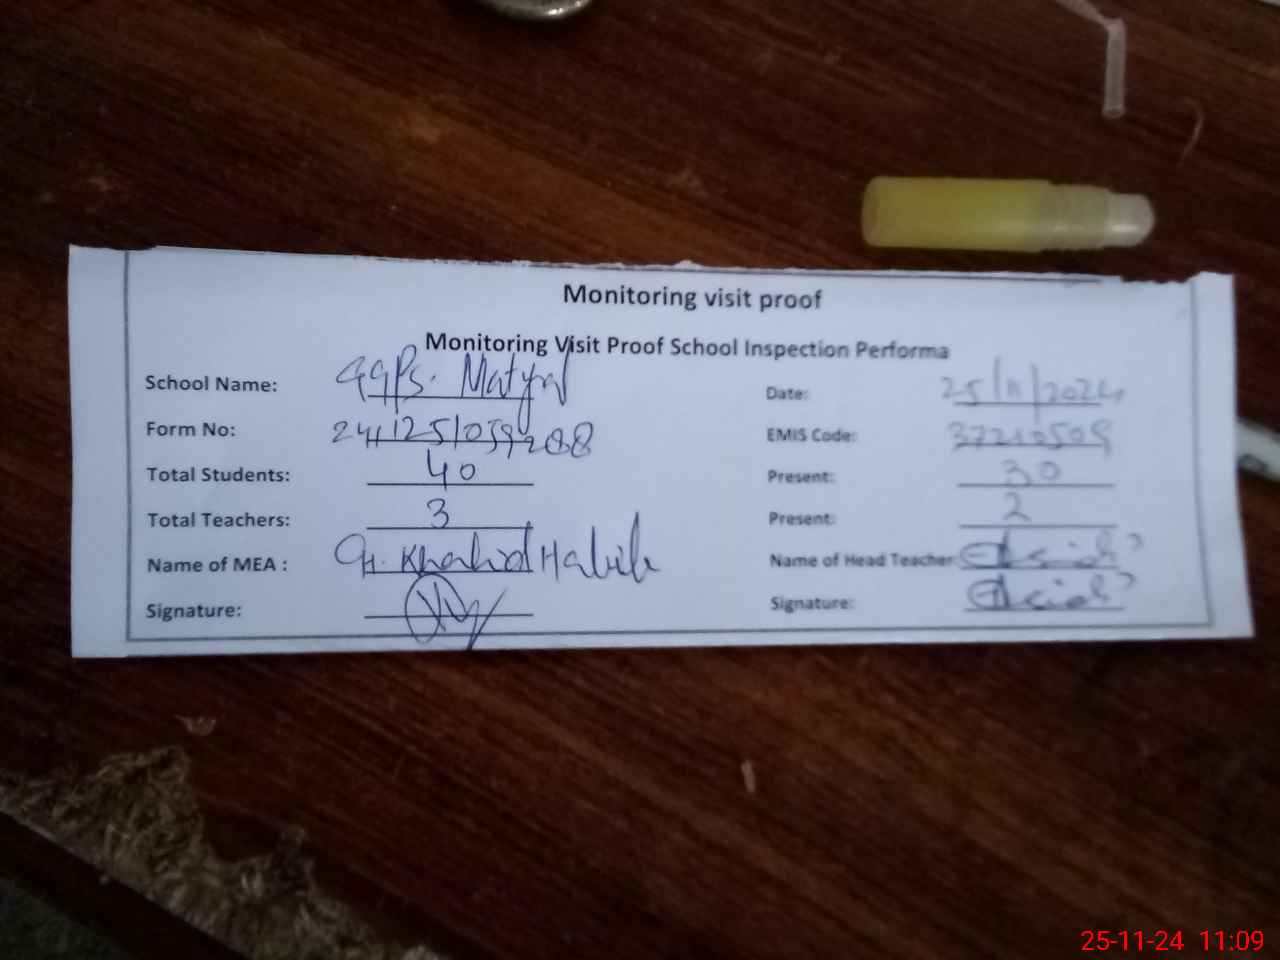 Monitoring visit proof
Monitoring Visit Proof School Inspection Performa
School Name: GGPS. Matyal Date: 25/11/2024
Form No: EMIS Code: 37210509
Total Students: 40 Present: 30
Total Teachers: 3 Present: 2
Name of MEA : Ch. Khalid Habib Name of Head Teacher
Signature: Signature:
25-11-24 11:09